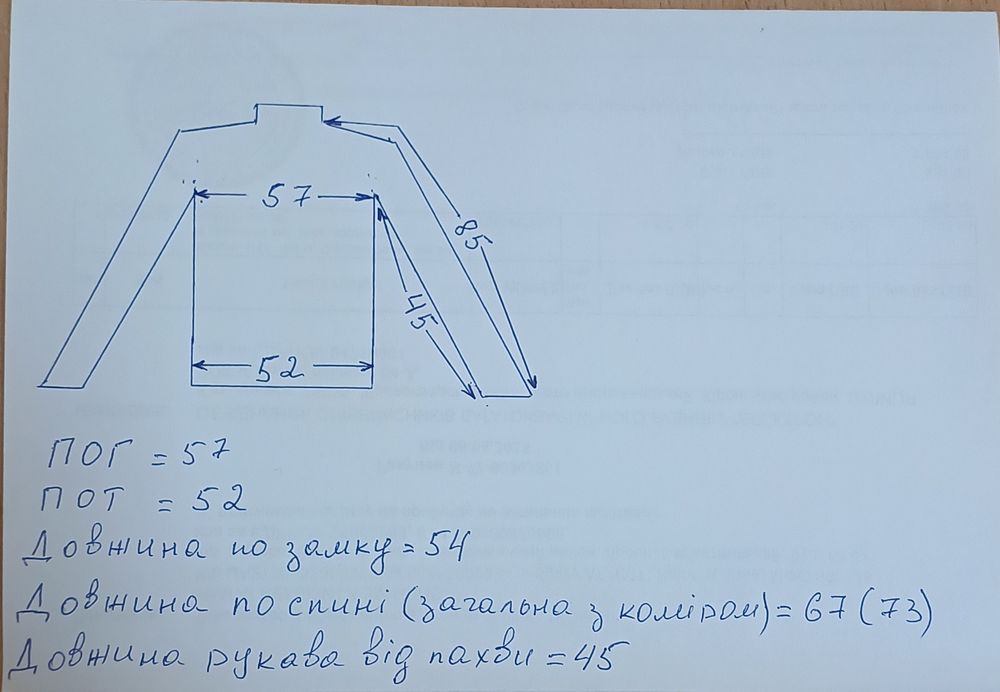 57
85
45
52
ПОГ = 57
ПОТ = 52
Довжина по замку = 54
Довжина по спині (загальна з коміром) = 67 (73)
Довжина рукава від пахви = 45